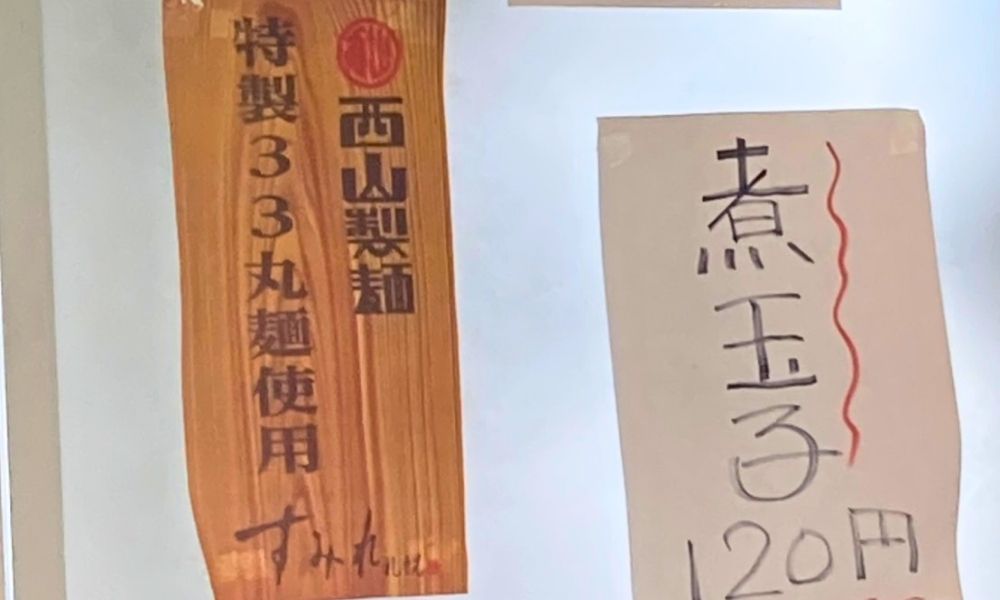 西山製麺
特製33丸麺使用
すみれ札幌
煮玉子
120円